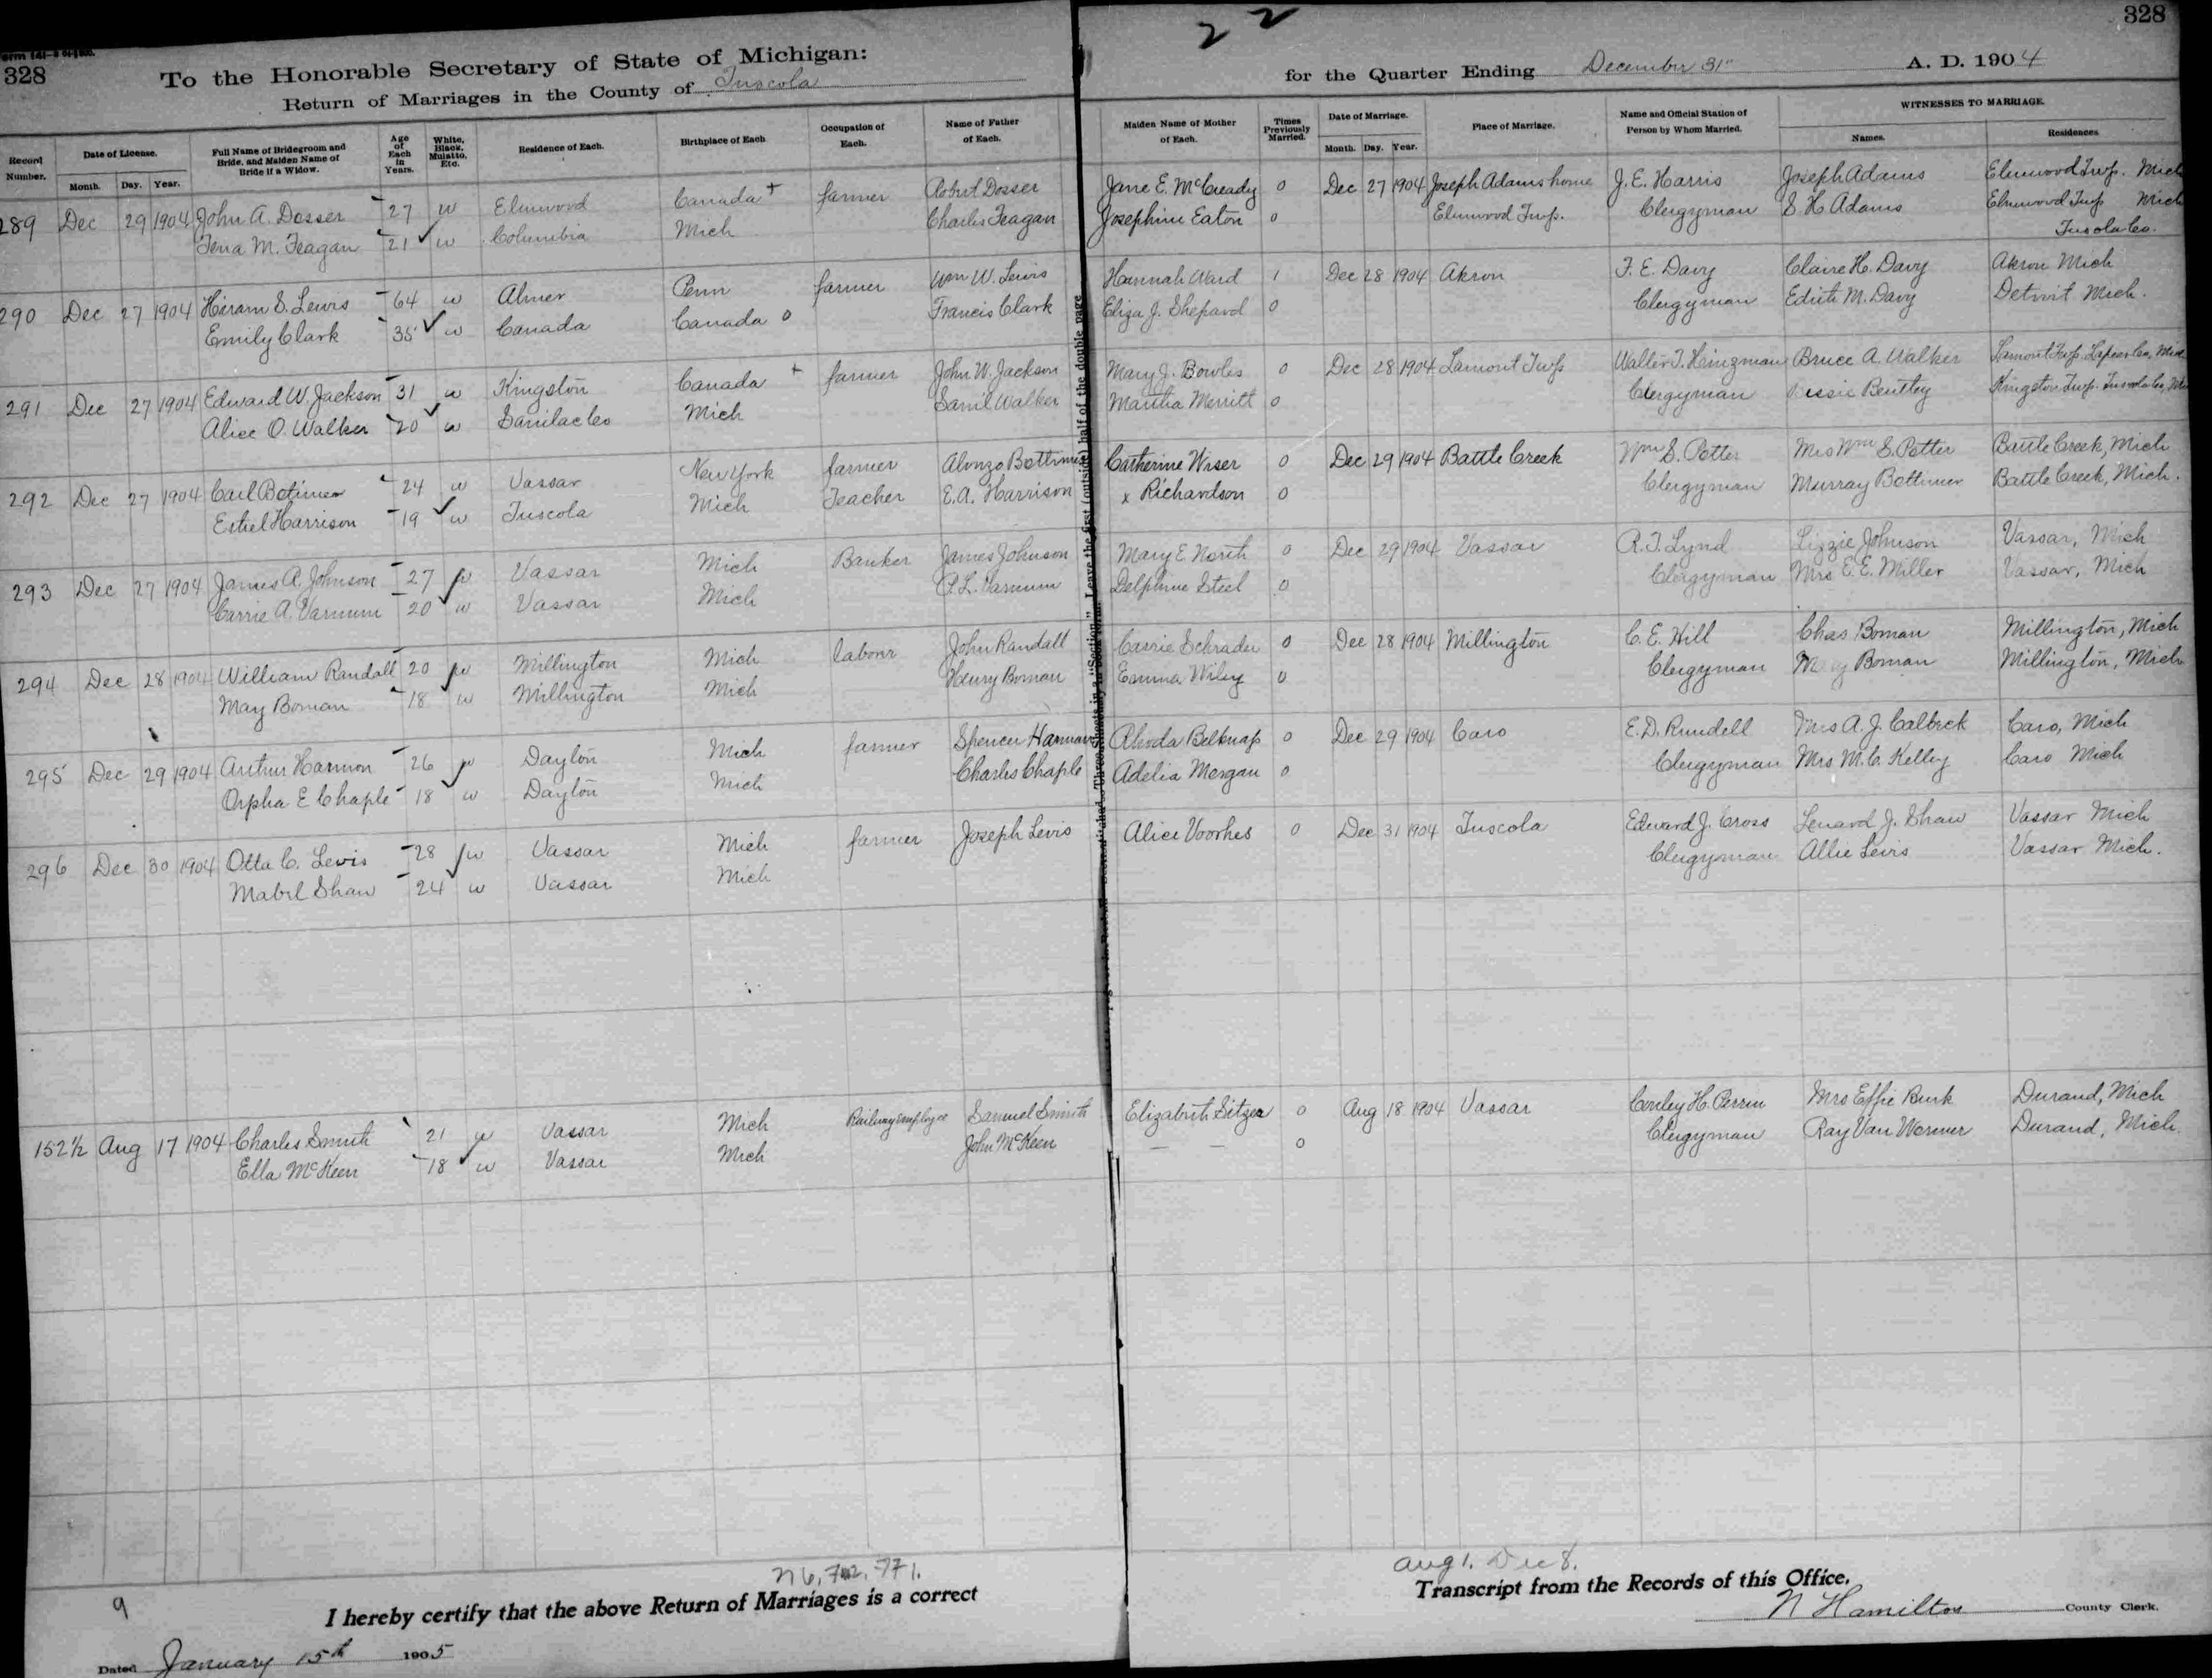 328
To the Honorable Secretary of State of Michigan:
Return of Marriages in the County of Tuscola
22
328
for the Quarter Ending December 31" A. D. 1904
Record Number.
Date of License.
Month. Day. Year.
Full Name of Bridegroom and Bride, and Maiden Name of Bride if a Widow.
Age of Each in Years.
White, Black, Mulatto, Etc.
Residence of Each.
Birthplace of Each
Occupation of Each.
Name of Father of Each.
Maiden Name of Mother of Each.
Times Previously Married.
Date of Marriage.
Month. Day. Year.
Place of Marriage.
Name and Official Station of Person by Whom Married.
WITNESSES TO MARRIAGE.
Names.
Residences
289 Dec 29 1904 John A. Dosser 27 w Elmwood Canada + farmer Robert Dosser Jane E. McCready 0 Dec 27 1904 Joseph Adams home J. E. Harris Joseph Adams Elmwood Twp. Mich
Tena M. Feagan 21 w Columbia Mich Charles Feagan Josephine Eaton 0 Elmwood Twp. Clergyman S. H. Adams Elmwood Twp Mich
Tuscola Co.
290 Dec 27 1904 Hiram S. Lewis 64 w Almer Penn farmer Wm W. Lewis Hannah Ward 1 Dec 28 1904 Akron F. E. Davy Claire H. Davy Akron Mich
Emily Clark 35 w Canada Canada 0 Francis Clark Eliza J. Shepard 0 Clergyman Edith M. Davy Detroit Mich.
291 Dec 27 1904 Edward W. Jackson 31 w Kingston Canada + farmer John W. Jackson Mary J. Bowles 0 Dec 28 1904 Lamont Twp Walter T. Heinzman Bruce A Walker Lamont Twp. Lapeer Co, Mich
Alice O. Walker 20 w Sanilac Co Mich Saml Walker Martha Merritt 0 Clergyman Bentley Kingston Twp. Tuscola Co,
292 Dec 27 1904 Carl Botimer 24 w Vassar New York farmer Alonzo Bottimer Catherine Wiser 0 Dec 29 1904 Battle Creek Wm S. Potter Mrs Wm S. Potter Battle Creek, Mich
Ethel Harrison 19 w Tuscola Mich Teacher E. A. Harrison x Richardson 0 Clergyman Murray Bottimer Battle Creek, Mich.
293 Dec 27 1904 James A. Johnson 27 w Vassar Mich Banker James Johnson Mary E North 0 Dec 29 1904 Vassar R. T. Lynd Lizzie Johnson Vassar, Mich
Carrie A. Varnum 20 w Vassar Mich P. L. Varnum Delphine Steel 0 Clergyman Mrs E. E. Miller Vassar, Mich
294 Dec 28 1904 William Randall 20 w Millington Mich labour John Randall Carrie Schrader 0 Dec 28 1904 Millington C. E. Hill Chas Boman Millington, Mich
May Boman 18 w Millington Mich Henry Boman Emma Wiley 0 Clergyman Boman Millington, Mich
295 Dec 29 1904 Arthur Harmon 26 w Dayton Mich farmer Spencer Harmon Rhoda Belknap 0 Dec 29 1904 Caro E. D. Rundell Mrs A. J. Calbeck Caro, Mich
Orpha E Chaple 18 w Dayton Mich Charles Chaple Adelia Morgan 0 Clergyman Mrs M. C. Kelley Caro Mich
296 Dec 30 1904 Otta C. Levis 28 w Vassar Mich farmer Joseph Levis Alice Voorhes 0 Dec 31 1904 Tuscola Edward J. Cross Lenard J. Shaw Vassar Mich
Mabel Shaw 24 w Vassar Mich Clergyman Allie Levis Vassar Mich.
152½ Aug 17 1904 Charles Smith 21 w Vassar Mich Railway employee Samuel Smith Elizabeth Sitzer 0 Aug 18 1904 Vassar Conley H. Perrin Mrs Effie Burk Durand, Mich
Ella McKeen 18 w Vassar Mich John McKeen — — 0 Clergyman Ray Van Wormer Durand, Mich.
9
Aug 1. Dec 8.
I hereby certify that the above Return of Marriages is a correct Transcript from the Records of this Office.
N Hamilton County Clerk.
Dated January 15th 1905